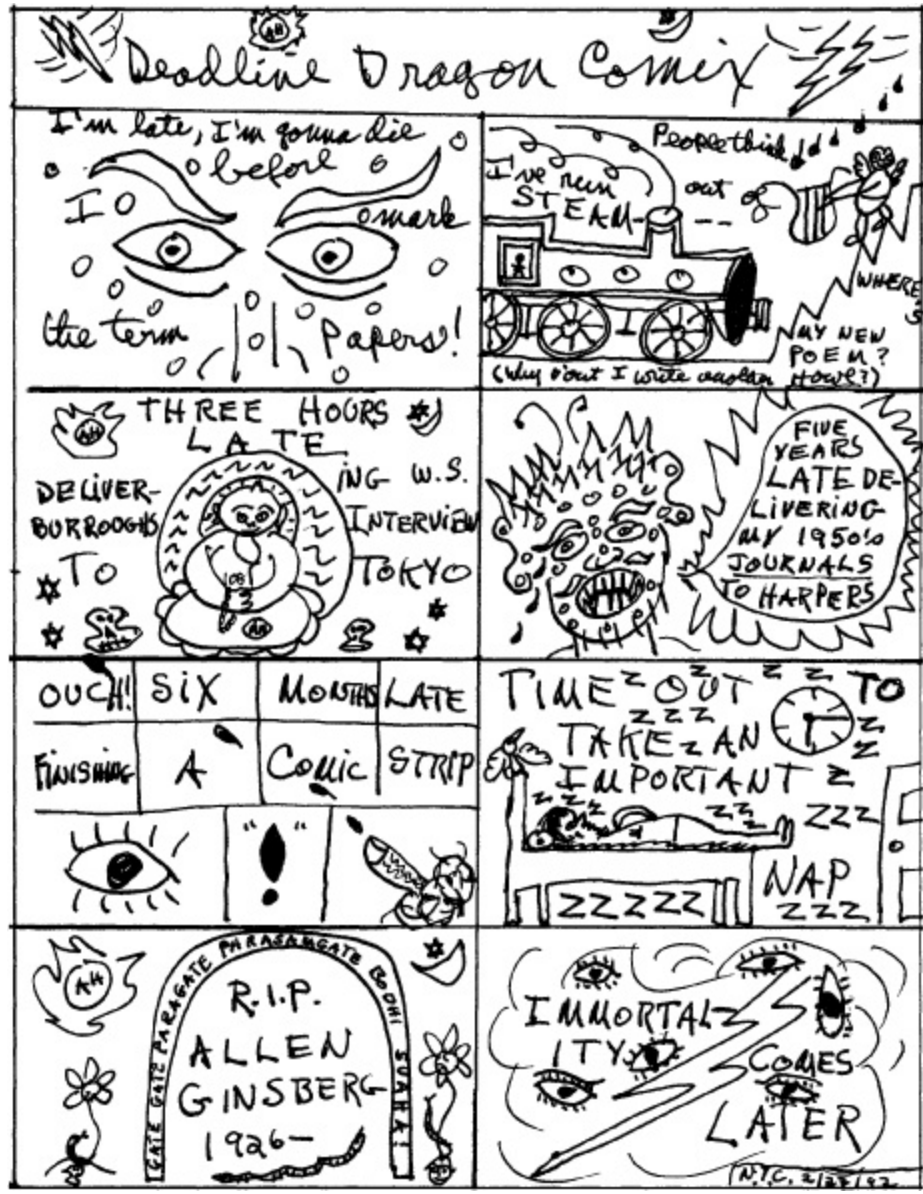 Deadline Dragon Comix
I'm late, I'm gonna die
before
I mark
the term Papers!
People think
I've run out
STEAM - - -
WHERE'S
MY NEW
POEM?
(Why don't I write another Howl?)
AH
THREE HOURS
LATE
DELIVER-ING W.S.
BURROUGHS INTERVIEW
TO TOKYO
AH
FIVE
YEARS
LATE DE-
LIVERING
MY 1950's
JOURNALS
TO HARPERS
OUCH! SIX MONTHS LATE
FINISHING A COMIC STRIP
" ! "
TIME Z OUT Z Z TO
Z Z Z Z
TAKE Z AN Z
IMPORTANT Z
Z Z Z Z Z ZZZ
NAP
ZZZZZ ZZZ
AH
GATE GATE PARAGATE PARASAMGATE BODHI SVAHA!
R.I.P.
ALLEN
GINSBERG
1926—
IMMORTAL-
ITY
COMES
LATER
N.Y.C. 2/27/92